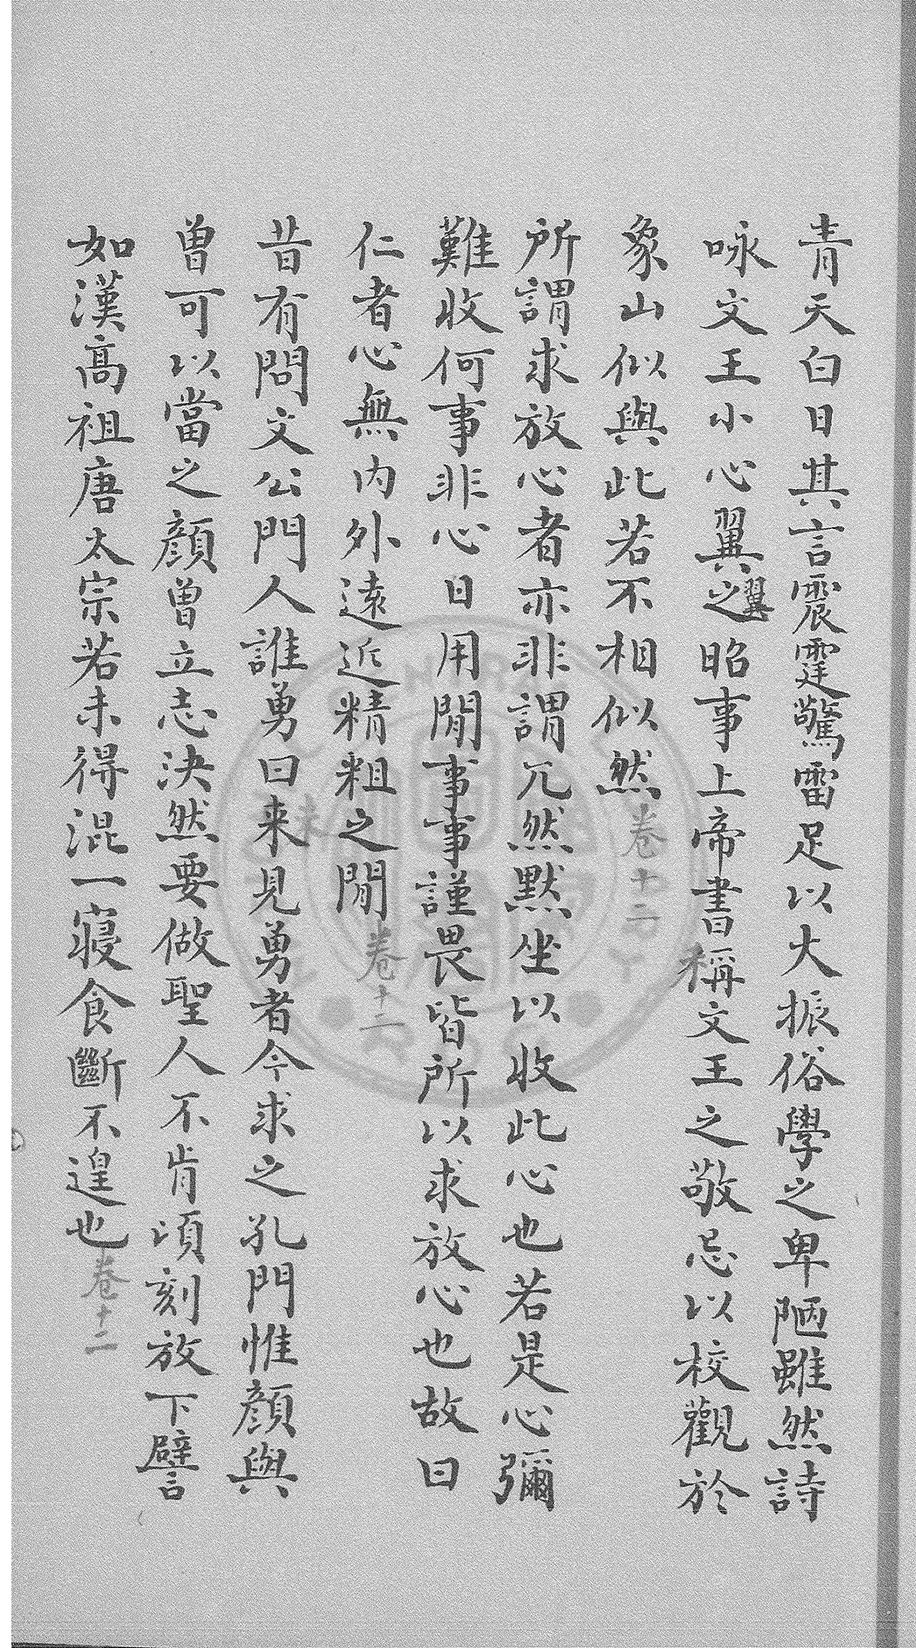 青天白日其言震霆驚雷足以大振俗學之卑陋雖然詩
咏文王小心翼之翼昭事上帝書稱文王之敬忌以校觀於
象山似與此若不相似然卷十二
所謂求放心者亦非謂兀然默坐以收此心也若是心彌
難收何事非心日用閒事事謹畏皆所以求放心也故曰
仁者心無内外遠近精粗之閒卷十二
昔有問文公門人誰勇曰来未見勇者今求之孔門惟顔與
曽可以當之顔曽立志決然要做聖人不肯頃刻放下譬
如漢高祖唐太宗若未得混一寢食斷不遑也卷十二